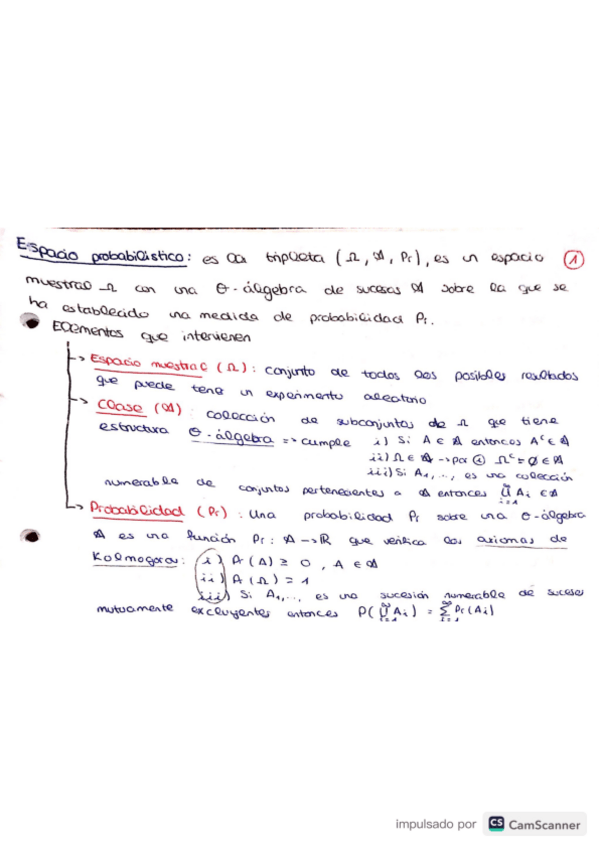 Espacio probabilístico: es la tripleta (Ω, 𝒜, Pr), es un espacio ①
muestral Ω con una σ-álgebra de sucesos 𝒜 sobre la que se
ha establecido una medida de probabilidad Pr.
Elementos que intervienen
→ Espacio muestral (Ω): conjunto de todos los posibles resultados
que puede tener un experimento aleatorio
→ Clase (𝒜): colección de subconjuntos de Ω que tiene
estructura σ-álgebra => cumple i) Si A ∈ 𝒜 entonces Aᶜ ∈ 𝒜
ii) Ω ∈ 𝒜 → por ① Ωᶜ = ∅ ∈ 𝒜
iii) Si A₁,..., es una colección
numerable de conjuntos pertenecientes a 𝒜 entonces ⋃_{i=1}^∞ Aᵢ ∈ 𝒜
→ Probabilidad (Pr): Una probabilidad Pr sobre una σ-álgebra
𝒜 es una función Pr: 𝒜 → ℝ que verifica los axiomas de
Kolmogorov: i) Pr(A) ≥ 0, A ∈ 𝒜
ii) Pr(Ω) = 1
iii) Si A₁,..., es una sucesión numerable de sucesos
mutuamente excluyentes entonces P(⋃_{i=1}^∞ Aᵢ) = ∑_{i=1}^∞ Pr(Aᵢ)
impulsado por CS CamScanner